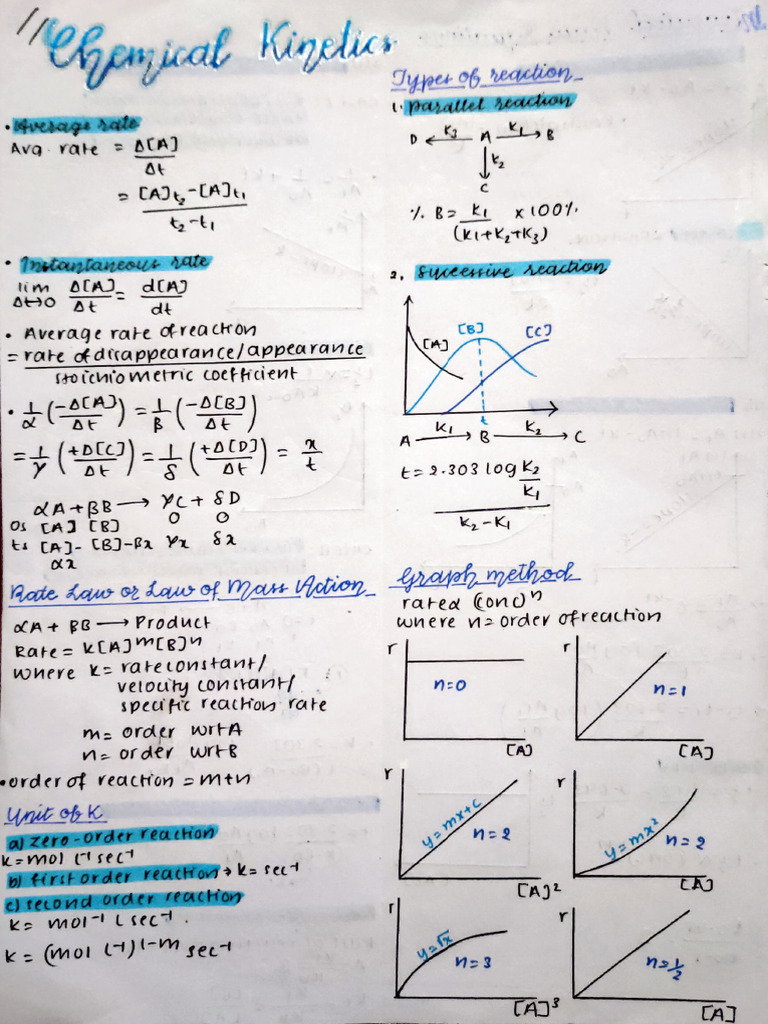 Chemical Kinetics
• Average rate
Avg. rate = Δ[A]
Δt
= [A]t₂-[A]t₁
t₂-t₁
• Instantaneous rate
lim Δ[A] = d[A]
Δt→0 Δt dt
• Average rate of reaction
= rate of disappearance/appearance
stoichiometric coefficient
• 1/α (-Δ[A]/Δt) = 1/β (-Δ[B]/Δt)
= 1/γ (+Δ[C]/Δt) = 1/δ (+Δ[D]/Δt) = x/t
αA + βB → γC + δD
0s [A] [B] 0 0
ts [A]- [B]-βx γx δx
αx
Rate Law or Law of Mass Action
αA + βB → Product
Rate = K[A]ᵐ[B]ⁿ
where K = rate constant/
velocity constant/
specific reaction rate
m = order wrt A
n = order wrt B
• order of reaction = m+n
Unit of K
a) zero-order reaction
K = mol L⁻¹ sec⁻¹
b) first order reaction → K = sec⁻¹
c) second order reaction
K = mol⁻¹ L sec⁻¹.
K = (mol L⁻¹)¹⁻ᵐ sec⁻¹
Types of reaction
1. Parallel reaction
D ←K₃ A K₁→ B
↓K₂
C
% B = K₁ x 100%
(K₁+K₂+K₃)
2. Successive reaction
[A] [B] [C]
t
A K₁→ B K₂→ C
t = 2.303 log K₂
K₁
K₂-K₁
Graph method
rate α (conc)ⁿ
where n = order of reaction
r n=0 [A]
r n=1 [A]
r y=mx+c n=2 [A]²
r y=mx² n=2 [A]
r y=√x n=3 [A]³
r n=1/2 [A]